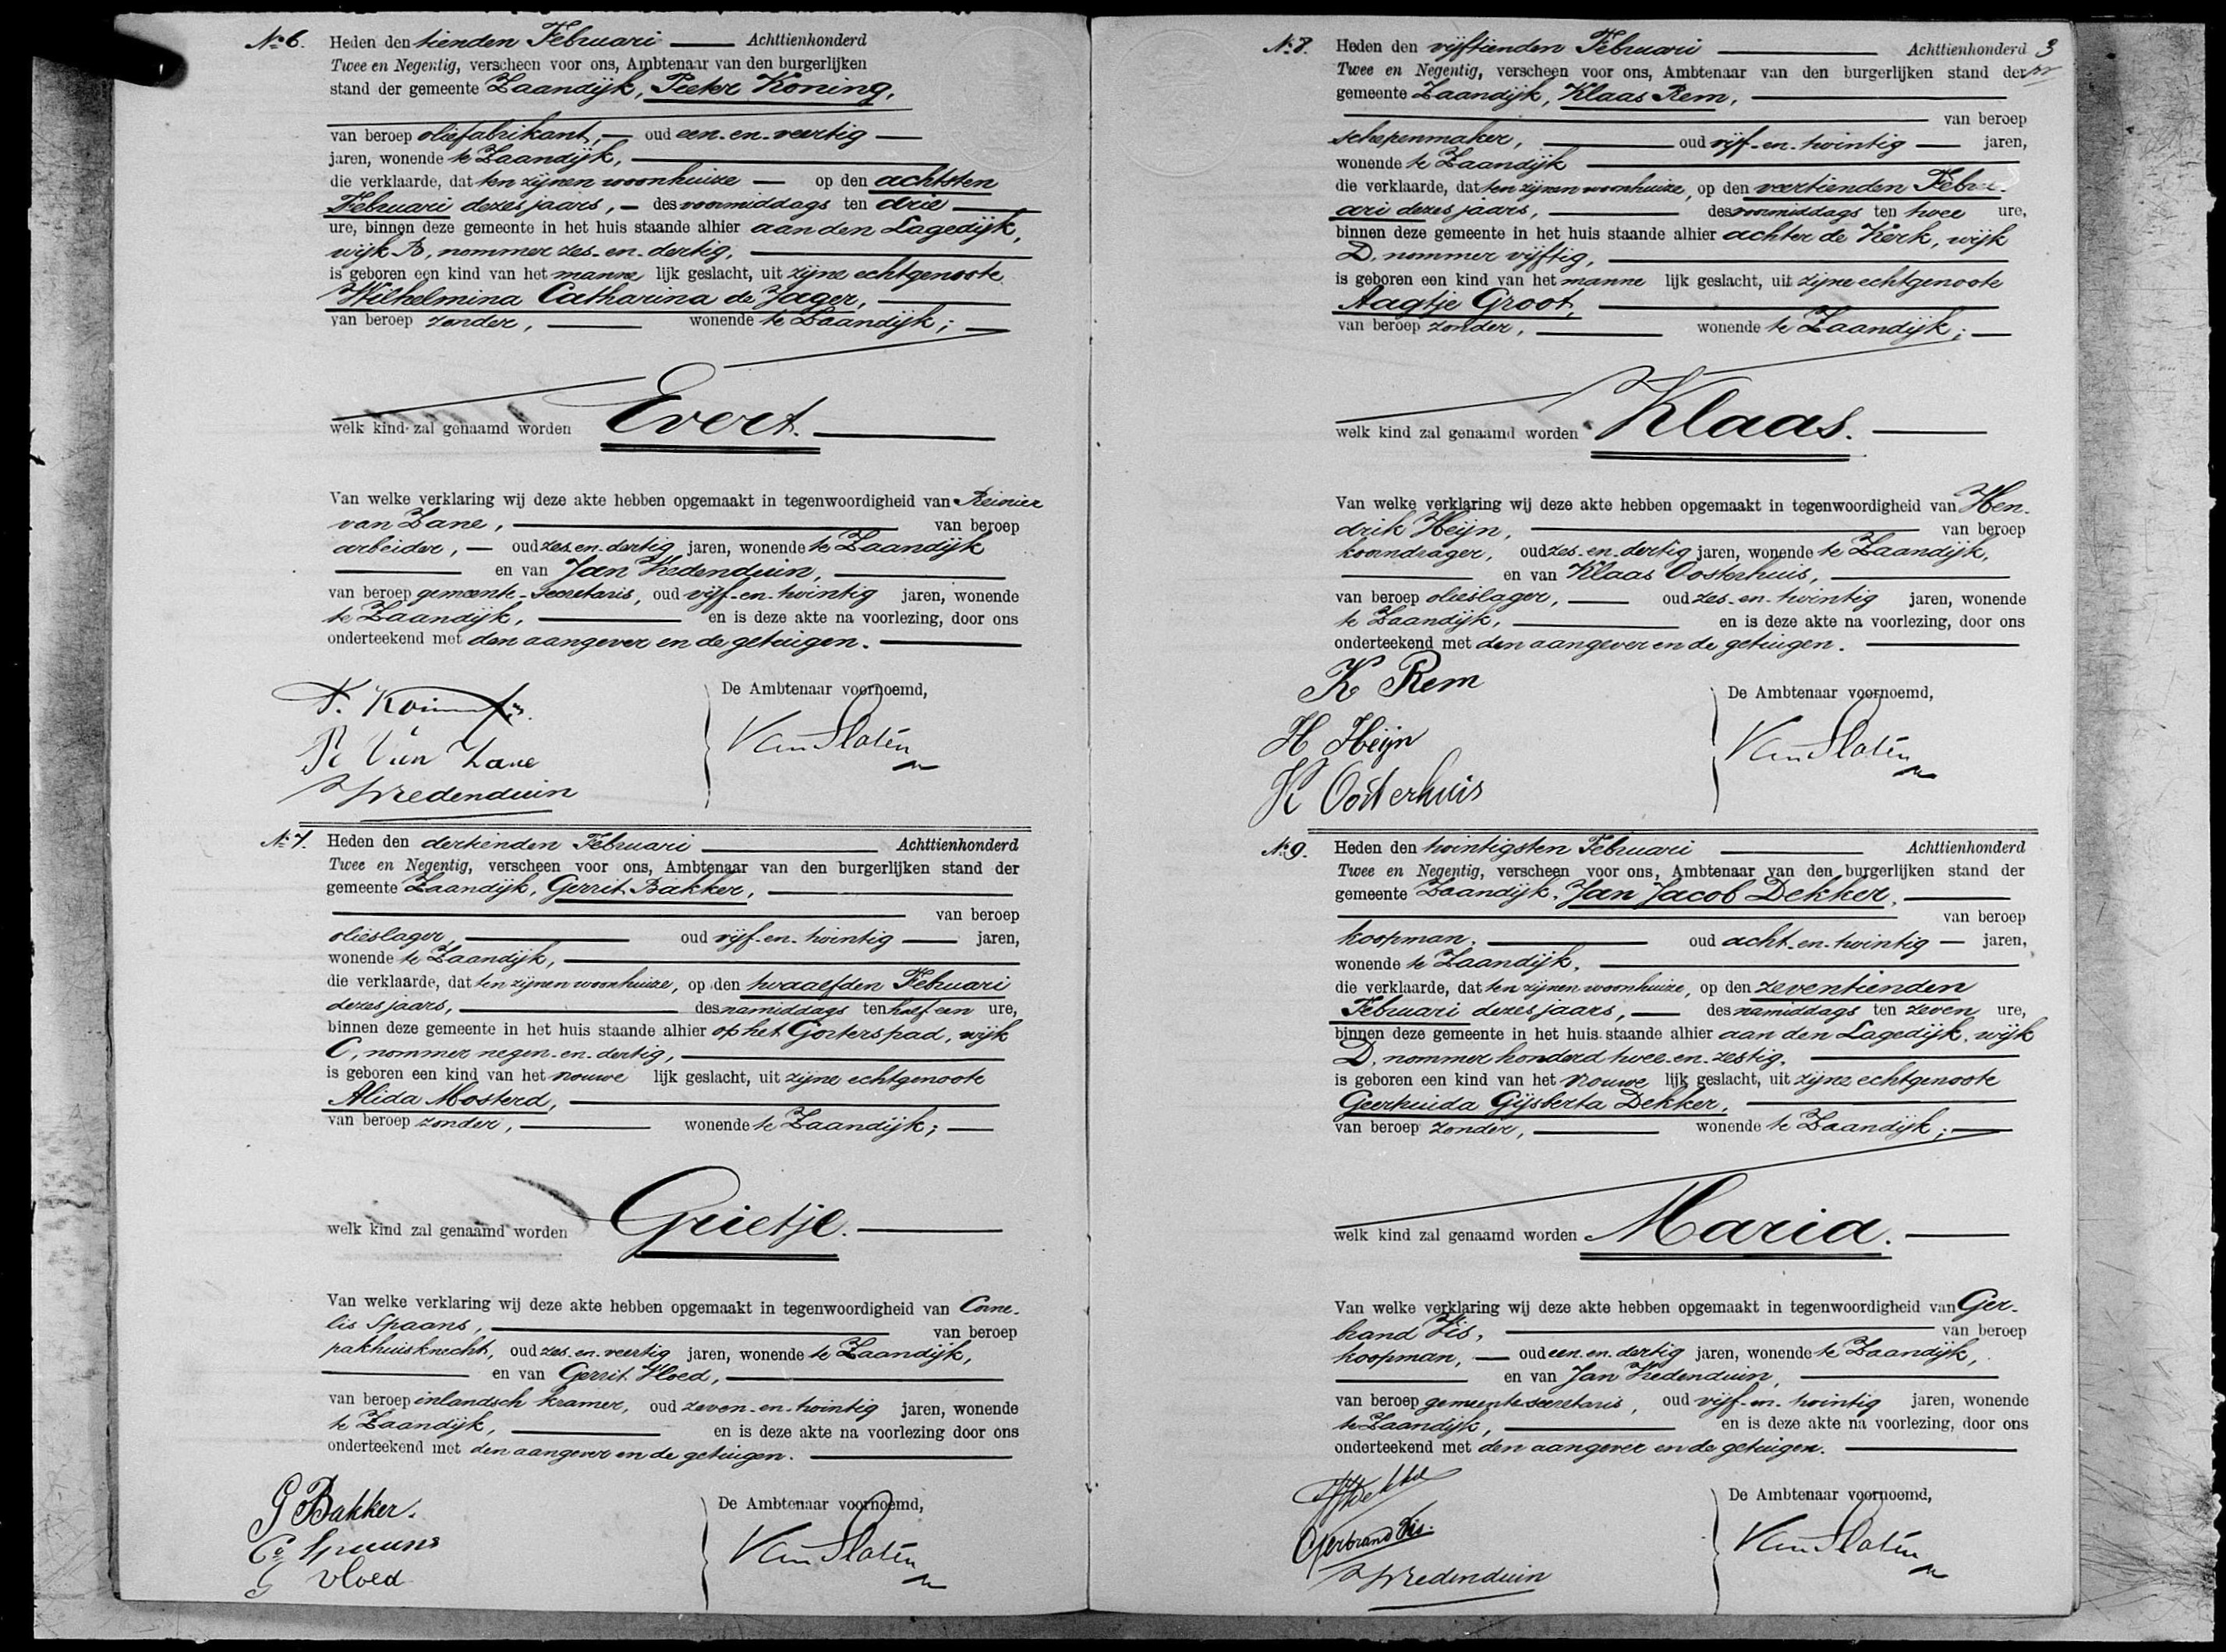 No 6. Heden den tienden Februari Achttienhonderd
Twee en Negentig, verscheen voor ons, Ambtenaar van den burgerlijken
stand der gemeente Zaandijk, Pieter Koning,
van beroep oliefabrikant, oud een-en-veertig
jaren, wonende te Zaandijk,
die verklaarde, dat ten zijnen woonhuize op den achtsten
Februari dezes jaars, des voormiddags ten drie
ure, binnen deze gemeente in het huis staande alhier aan den Lagedijk,
wijk B, nommer zes-en-dertig,
is geboren een kind van het manne lijk geslacht, uit zijne echtgenoote
Wilhelmina Catharina de Jager,
van beroep zonder, wonende te Zaandijk;
welk kind zal genaamd worden Evert.
Van welke verklaring wij deze akte hebben opgemaakt in tegenwoordigheid van Reinier
van Zane, van beroep
arbeider, oud zes-en-dertig jaren, wonende te Zaandijk
en van Jan Vredenduin,
van beroep gemeente-secretaris, oud vijf-en-twintig jaren, wonende
te Zaandijk, en is deze akte na voorlezing, door ons
onderteekend met den aangever en de getuigen.
De Ambtenaar voornoemd,
P. Koning
R Van Zane
Van Slaten
J Vredenduin
No 7. Heden den dertienden Februari Achttienhonderd
Twee en Negentig, verscheen voor ons, Ambtenaar van den burgerlijken stand der
gemeente Zaandijk, Gerrit Bakker,
van beroep
olieslager, oud vijf-en-twintig jaren,
wonende te Zaandijk,
die verklaarde, dat ten zijnen woonhuize, op den twaalfden Februari
dezes jaars, des namiddags ten half een ure,
binnen deze gemeente in het huis staande alhier op het Gorterspad, wijk
C, nommer negen-en-dertig,
is geboren een kind van het vrouwe lijk geslacht, uit zijne echtgenoote
Alida Mosterd,
van beroep zonder, wonende te Zaandijk;
welk kind zal genaamd worden Grietje.
Van welke verklaring wij deze akte hebben opgemaakt in tegenwoordigheid van Corne-
lis Spaans, van beroep
pakhuisknecht, oud zes-en-veertig jaren, wonende te Zaandijk,
en van Gerrit Vloed,
van beroep inlandsch kramer, oud zeven-en-twintig jaren, wonende
te Zaandijk, en is deze akte na voorlezing door ons
onderteekend met den aangever en de getuigen.
De Ambtenaar voornoemd,
G Bakker.
Cs Spaans
Van Slaten
G Vloed
3
No 8. Heden den vijftienden Februari Achttienhonderd
Twee en Negentig, verscheen voor ons, Ambtenaar van den burgerlijken stand der
gemeente Zaandijk, Klaas Rem,
van beroep
schepenmaker, oud vijf-en-twintig jaren,
wonende te Zaandijk
die verklaarde, dat ten zijnen woonhuize, op den veertienden Febru-
ari dezes jaars, des voormiddags ten twee ure,
binnen deze gemeente in het huis staande alhier achter de Kerk, wijk
D, nommer vijftig,
is geboren een kind van het manne lijk geslacht, uit zijne echtgenoote
Aagtje Groot,
van beroep zonder, wonende te Zaandijk;
welk kind zal genaamd worden Klaas.
Van welke verklaring wij deze akte hebben opgemaakt in tegenwoordigheid van Hen-
drik Heijn, van beroep
koorndrager, oud zes-en-dertig jaren, wonende te Zaandijk,
en van Klaas Oosterhuis,
van beroep olieslager, oud zes-en-twintig jaren, wonende
te Zaandijk, en is deze akte na voorlezing, door ons
onderteekend met den aangever en de getuigen.
K Rem
De Ambtenaar voornoemd,
H Heijn
Van Slaten
K Oosterhuis
No 9. Heden den twintigsten Februari Achttienhonderd
Twee en Negentig, verscheen voor ons, Ambtenaar van den burgerlijken stand der
gemeente Zaandijk, Jan Jacob Dekker,
van beroep
koopman, oud acht-en-twintig jaren,
wonende te Zaandijk,
die verklaarde, dat ten zijnen woonhuize, op den zeventienden
Februari dezes jaars, des namiddags ten zeven ure,
binnen deze gemeente in het huis staande alhier aan den Lagedijk, wijk
D, nommer honderd twee-en-zestig,
is geboren een kind van het vrouwe lijk geslacht, uit zijne echtgenoote
Geertruida Gijsberta Dekker,
van beroep zonder, wonende te Zaandijk;
welk kind zal genaamd worden Maria.
Van welke verklaring wij deze akte hebben opgemaakt in tegenwoordigheid van Ger-
brand Vis, van beroep
koopman, oud een-en-dertig jaren, wonende te Zaandijk,
en van Jan Vredenduin,
van beroep gemeentesecretaris, oud vijf-en-twintig jaren, wonende
te Zaandijk, en is deze akte na voorlezing, door ons
onderteekend met den aangever en de getuigen.
JJDekker
De Ambtenaar voornoemd,
Gerbrand Vis.
Van Slaten
J Vredenduin